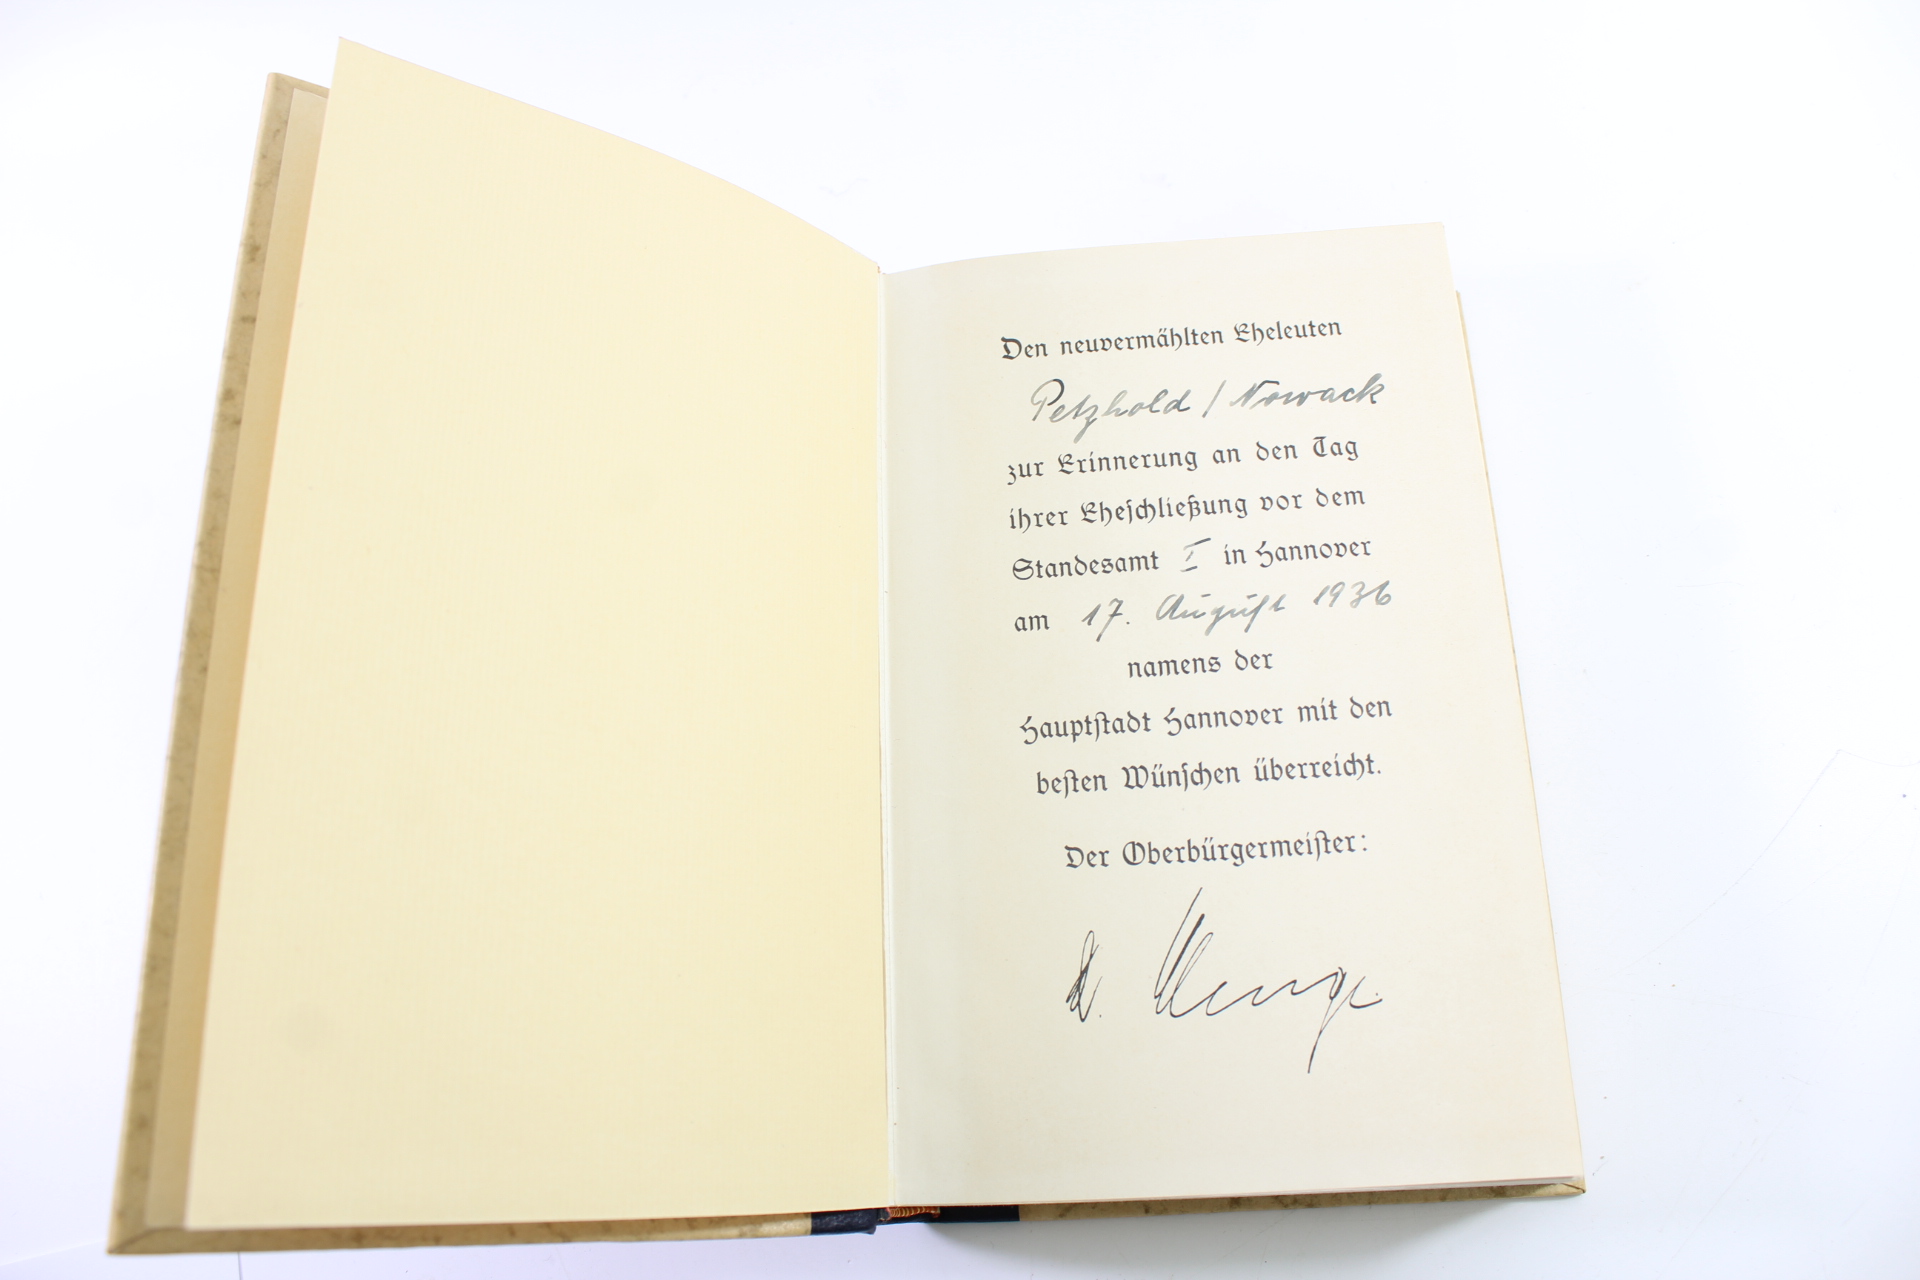 Den neuvermählten Eheleuten
Petzhold / Nowack
zur Erinnerung an den Tag
ihrer Eheſchließung vor dem
Standesamt I in Hannover
am 17. Auguſt 1936
namens der
Hauptſtadt Hannover mit den
beſten Wünſchen überreicht.
Der Oberbürgermeiſter:
Menge